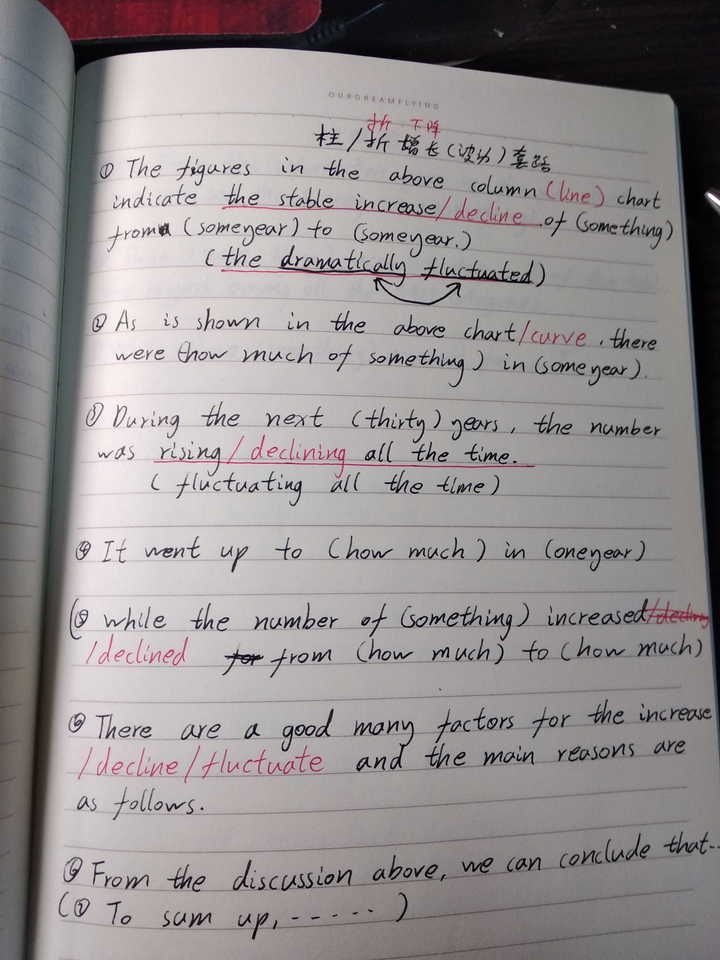 OURDREAMFLYING
折 下降
柱/折 增长(波动)套路
① The figures in the above column (line) chart
indicate the stable increase/decline of (something)
from (someyear) to (someyear.)
(the dramatically fluctuated)
② As is shown in the above chart/curve, there
were (how much of something) in (someyear).
③ During the next (thirty) years, the number
was rising/declining all the time.
( fluctuating all the time)
④ It went up to (how much) in (oneyear)
(⑤ while the number of (something) increased/declining
/declined for from (how much) to (how much)
⑥ There are a good many factors for the increase
/decline/fluctuate and the main reasons are
as follows.
⑥ From the discussion above, we can conclude that--
(⑦ To sum up, ----- )